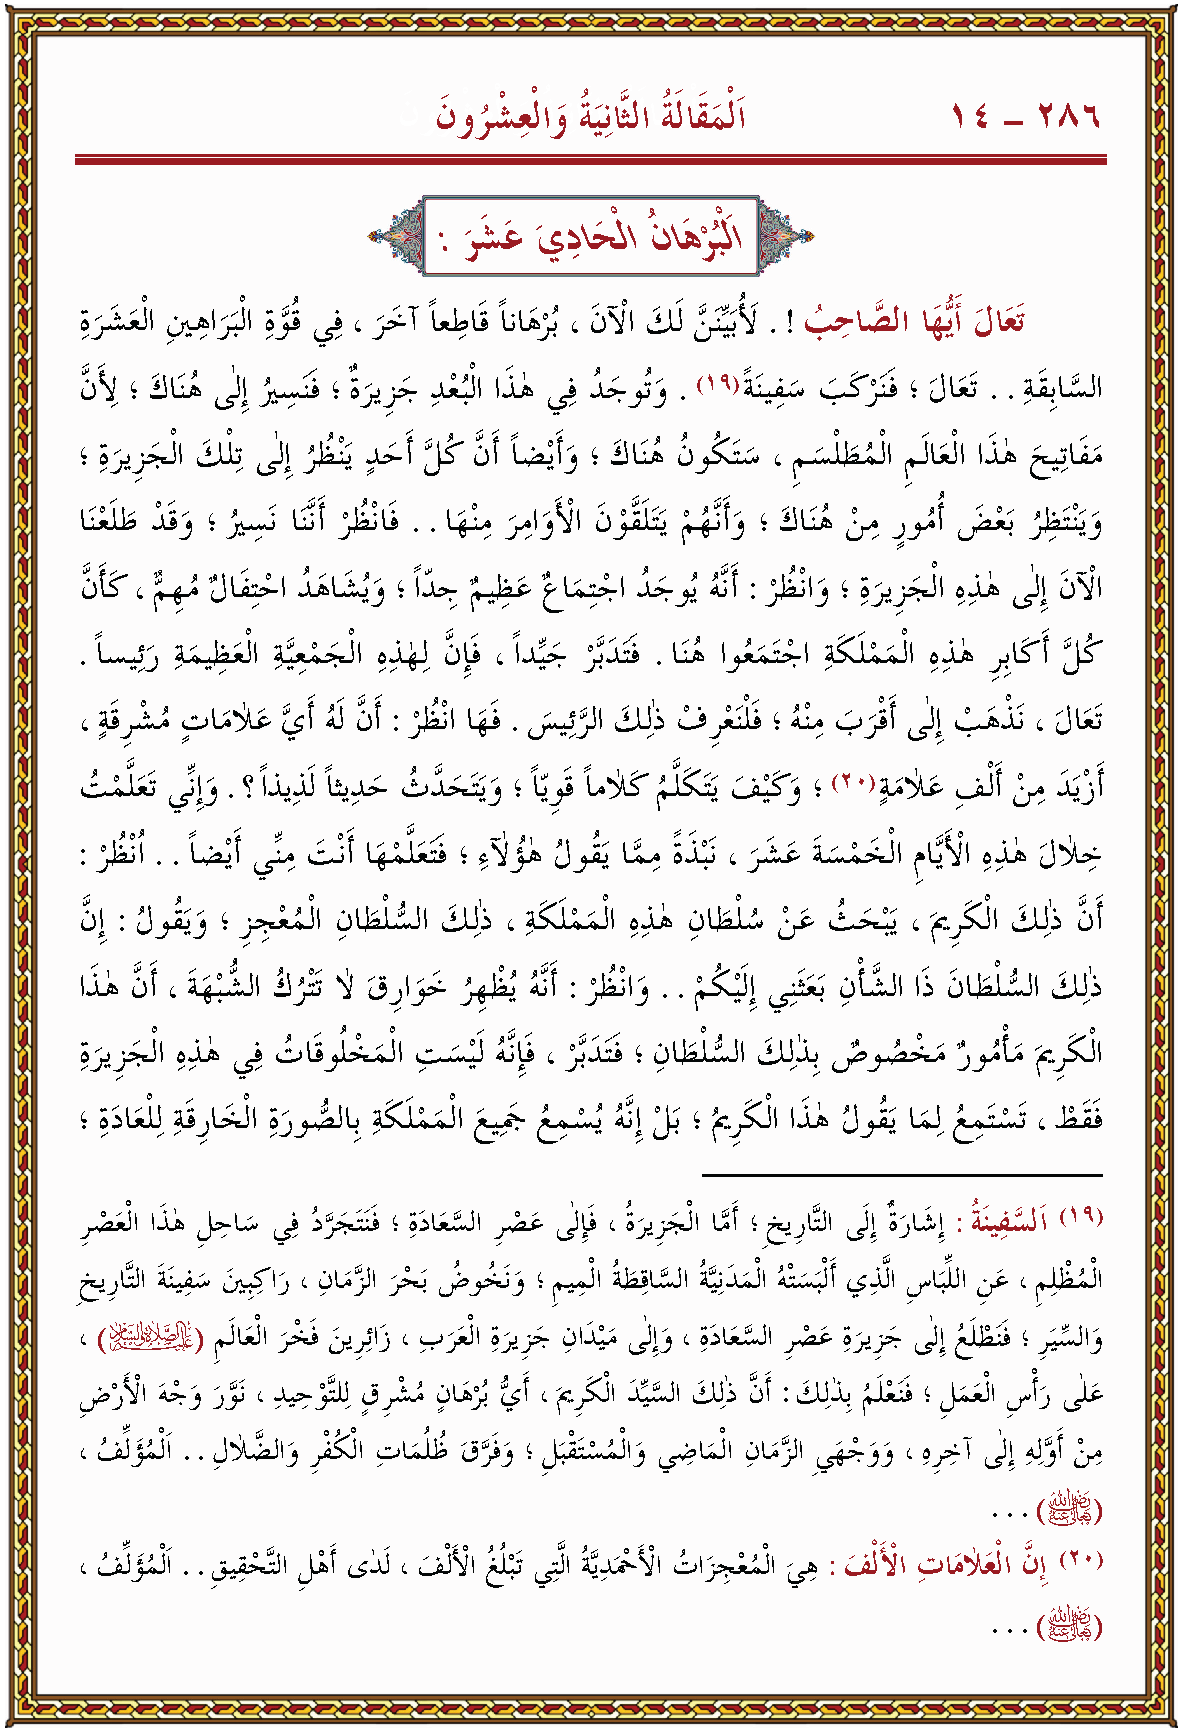 ٢٨٦ – ١٤ اَلْمَقَالَةُ الثَّانِيَةُ وَالْعِشْرُونَ
اَلْبُرْهَانُ الْحَادِيَ عَشَرَ :
تَعَالَ أَيُّهَا الصَّاحِبُ ! . لَأُبَيِّنَنَّ لَكَ الْآنَ ، بُرْهَاناً قَاطِعاً آخَرَ ، فِي قُوَّةِ الْبَرَاهِينِ الْعَشَرَةِ
السَّابِقَةِ . . تَعَالَ ؛ فَنَرْكَبَ سَفِينَةً (١٩) . وَتُوجَدُ فِي هٰذَا الْبُعْدِ جَزِيرَةٌ ؛ فَنَسِيرُ إِلٰى هُنَاكَ ؛ لِأَنَّ
مَفَاتِيحَ هٰذَا الْعَالَمِ الْمُطَلْسَمِ ، سَتَكُونُ هُنَاكَ ؛ وَأَيْضاً أَنَّ كُلَّ أَحَدٍ يَنْظُرُ إِلٰى تِلْكَ الْجَزِيرَةِ ؛
وَيَنْتَظِرُ بَعْضَ أُمُورٍ مِنْ هُنَاكَ ؛ وَأَنَّهُمْ يَتَلَقَّوْنَ الْأَوَامِرَ مِنْهَا . . فَانْظُرْ أَنَّنَا نَسِيرُ ؛ وَقَدْ طَلَعْنَا
الْآنَ إِلٰى هٰذِهِ الْجَزِيرَةِ ؛ وَانْظُرْ : أَنَّهُ يُوجَدُ اجْتِمَاعٌ عَظِيمٌ جِدّاً ؛ وَيُشَاهَدُ احْتِفَالٌ مُهِمٌّ ، كَأَنَّ
كُلَّ أَكَابِرِ هٰذِهِ الْمَمْلَكَةِ اجْتَمَعُوا هُنَا . فَتَدَبَّرْ جَيِّداً ، فَإِنَّ لِهٰذِهِ الْجَمْعِيَّةِ الْعَظِيمَةِ رَئِيساً .
تَعَالَ ، نَذْهَبْ إِلٰى أَقْرَبَ مِنْهُ ؛ فَلْنَعْرِفْ ذٰلِكَ الرَّئِيسَ . فَهَا انْظُرْ : أَنَّ لَهُ أَيَّ عَلاٰمَاتٍ مُشْرِقَةٍ ،
أَزْيَدَ مِنْ أَلْفِ عَلاٰمَةٍ (٢٠) ؛ وَكَيْفَ يَتَكَلَّمُ كَلاٰماً قَوِيّاً ؛ وَيَتَحَدَّثُ حَدِيثاً لَذِيذاً ؟ . وَإِنِّي تَعَلَّمْتُ
خِلاٰلَ هٰذِهِ الْأَيَّامِ الْخَمْسَةَ عَشَرَ ، نَبْذَةً مِمَّا يَقُولُ هٰؤُلآٰءِ ؛ فَتَعَلَّمْهَا أَنْتَ مِنِّي أَيْضاً . . اُنْظُرْ :
أَنَّ ذٰلِكَ الْكَرِيمَ ، يَبْحَثُ عَنْ سُلْطَانِ هٰذِهِ الْمَمْلَكَةِ ، ذٰلِكَ السُّلْطَانِ الْمُعْجِزِ ؛ وَيَقُولُ : إِنَّ
ذٰلِكَ السُّلْطَانَ ذَا الشَّأْنِ بَعَثَنِي إِلَيْكُمْ . . وَانْظُرْ : أَنَّهُ يُظْهِرُ خَوَارِقَ لاٰ تَتْرُكُ الشُّبْهَةَ ، أَنَّ هٰذَا
الْكَرِيمَ مَأْمُورٌ مَخْصُوصٌ بِذٰلِكَ السُّلْطَانِ ؛ فَتَدَبَّرْ ، فَإِنَّهُ لَيْسَتِ الْمَخْلُوقَاتُ فِي هٰذِهِ الْجَزِيرَةِ
فَقَطْ ، تَسْتَمِعُ لِمَا يَقُولُ هٰذَا الْكَرِيمُ ؛ بَلْ إِنَّهُ يُسْمِعُ جَمِيعَ الْمَمْلَكَةِ بِالصُّورَةِ الْخَارِقَةِ لِلْعَادَةِ ؛
(١٩) اَلسَّفِينَةُ : إِشَارَةٌ إِلَى التَّارِيخِ ؛ أَمَّا الْجَزِيرَةُ ، فَإِلٰى عَصْرِ السَّعَادَةِ ؛ فَنَتَجَرَّدُ فِي سَاحِلِ هٰذَا الْعَصْرِ
الْمُظْلِمِ ، عَنِ اللِّبَاسِ الَّذِي أَلْبَسَتْهُ الْمَدَنِيَّةُ السَّاقِطَةُ الْمِيمِ ؛ وَنَخُوضُ بَحْرَ الزَّمَانِ ، رَاكِبِينَ سَفِينَةَ التَّارِيخِ
وَالسِّيَرِ ؛ فَنَطْلَعُ إِلٰى جَزِيرَةِ عَصْرِ السَّعَادَةِ ، وَإِلٰى مَيْدَانِ جَزِيرَةِ الْعَرَبِ ، زَائِرِينَ فَخْرَ الْعَالَمِ (عَلَيْهِ الصَّلاَةُ وَالسَّلاَمُ) ،
عَلٰى رَأْسِ الْعَمَلِ ؛ فَنَعْلَمُ بِذٰلِكَ : أَنَّ ذٰلِكَ السَّيِّدَ الْكَرِيمَ ، أَيُّ بُرْهَانٍ مُشْرِقٍ لِلتَّوْحِيدِ ، نَوَّرَ وَجْهَ الْأَرْضِ
مِنْ أَوَّلِهِ إِلٰى آخِرِهِ ، وَوَجْهَيِ الزَّمَانِ الْمَاضِي وَالْمُسْتَقْبَلِ ؛ وَفَرَّقَ ظُلُمَاتِ الْكُفْرِ وَالضَّلاٰلِ . . اَلْمُؤَلِّفُ ،
(رَضِيَ اللهُ تَعَالَى عَنْهُ) . . .
(٢٠) إِنَّ الْعَلاٰمَاتِ الْأَلْفَ : هِيَ الْمُعْجِزَاتُ الْأَحْمَدِيَّةُ الَّتِي تَبْلُغُ الْأَلْفَ ، لَدٰى أَهْلِ التَّحْقِيقِ . . اَلْمُؤَلِّفُ ،
(رَضِيَ اللهُ تَعَالَى عَنْهُ) . . .